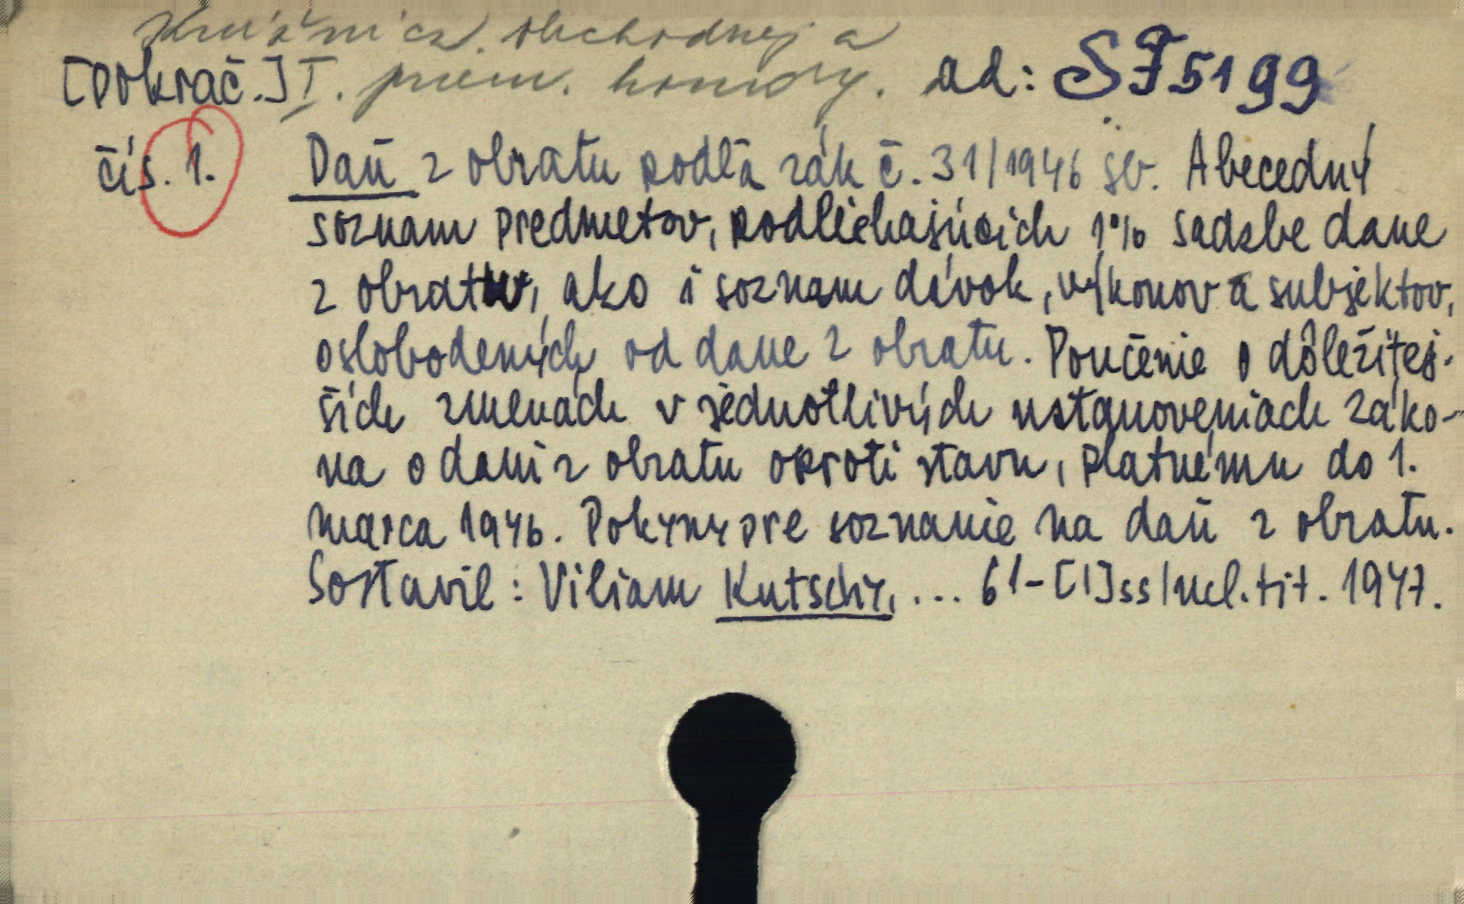 Knižnica obchodnej a
[Pokrač.] I. priem. komory. ad: SF 5199
čís. 1. Daň z obratu podľa zák č. 31/1946 sb. Abecedný
soznam predmetov, podliehajúcich 1% sadzbe dane
z obratu, ako i soznam dávok, výkonov a subjektov,
oslobodených od dane z obratu. Poučenie o dôležitej-
ších zmenách v jednotlivých ustanoveniach záko-
na o dani z obratu oproti stavu, platnému do 1.
marca 1946. Pokyny pre soznanie na daň z obratu.
Sostavil: Viliam Kutschy, ... 61-[1]ss/incl.tit. 1947.